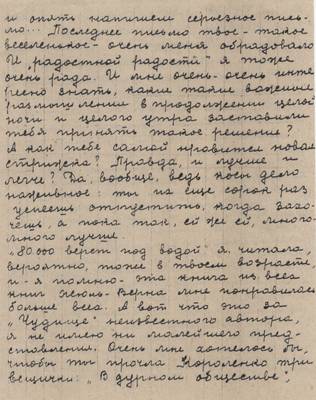 и опять напишем серьезное пись-
мо... Последнее письмо твое - такое
веселенькое - очень меня обрадовало
И „радостной радости" я тоже
очень рада. И мне очень-очень инте
ресно знать, какие такие важные
размышления в продолжении целой
ночи и целого утра заставили
тебя принять такое решение?
А как тебе самой нравится новая
стрижка? Правда, и лучше и
легче? Да, вообще, ведь косы дело
наживное: ты их еще сорок раз
успеешь отпустить, когда захо-
чешь, а пока так, ей же ей, много-
много лучше.
„80000 верст под водой" я читала,
вероятно, тоже в твоем возрасте,
и я помню - эта книга из всех
книг Жюль-Верна мне понравилась
больше всех. А вот что это за
„Чудище" неизвестного автора,
я не имею ни малейшего пред-
ставления. Очень мне хотелось бы,
чтобы ты прочла Короленко три
вещички: „В дурном обществе",